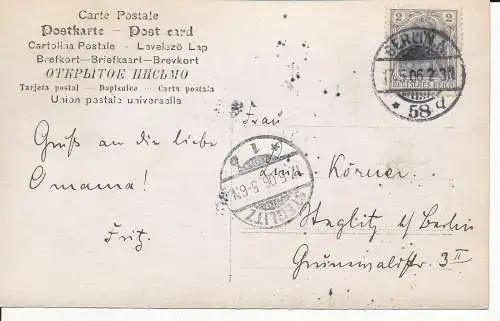 Carte Postale
Postkarte — Post card
Cartolina Postale - Levelező Lap
Brefkort—Briefkaart—Brevkort
ОТКРЫТОЕ ПИСЬМО
Tarjeta postal — Dopisnice - Carta postala
Union postale universelle
2
DEUTSCHES REICH
BERLIN
17.5.06. 2-3N
* 58 d
Gruß an die liebe
Omama!
Fritz.
* 1 e
17.5.06. 5-6N
STEGLITZ
Frau
Körner
Steglitz b/ Berlin
Grunewaldstr. 3 II